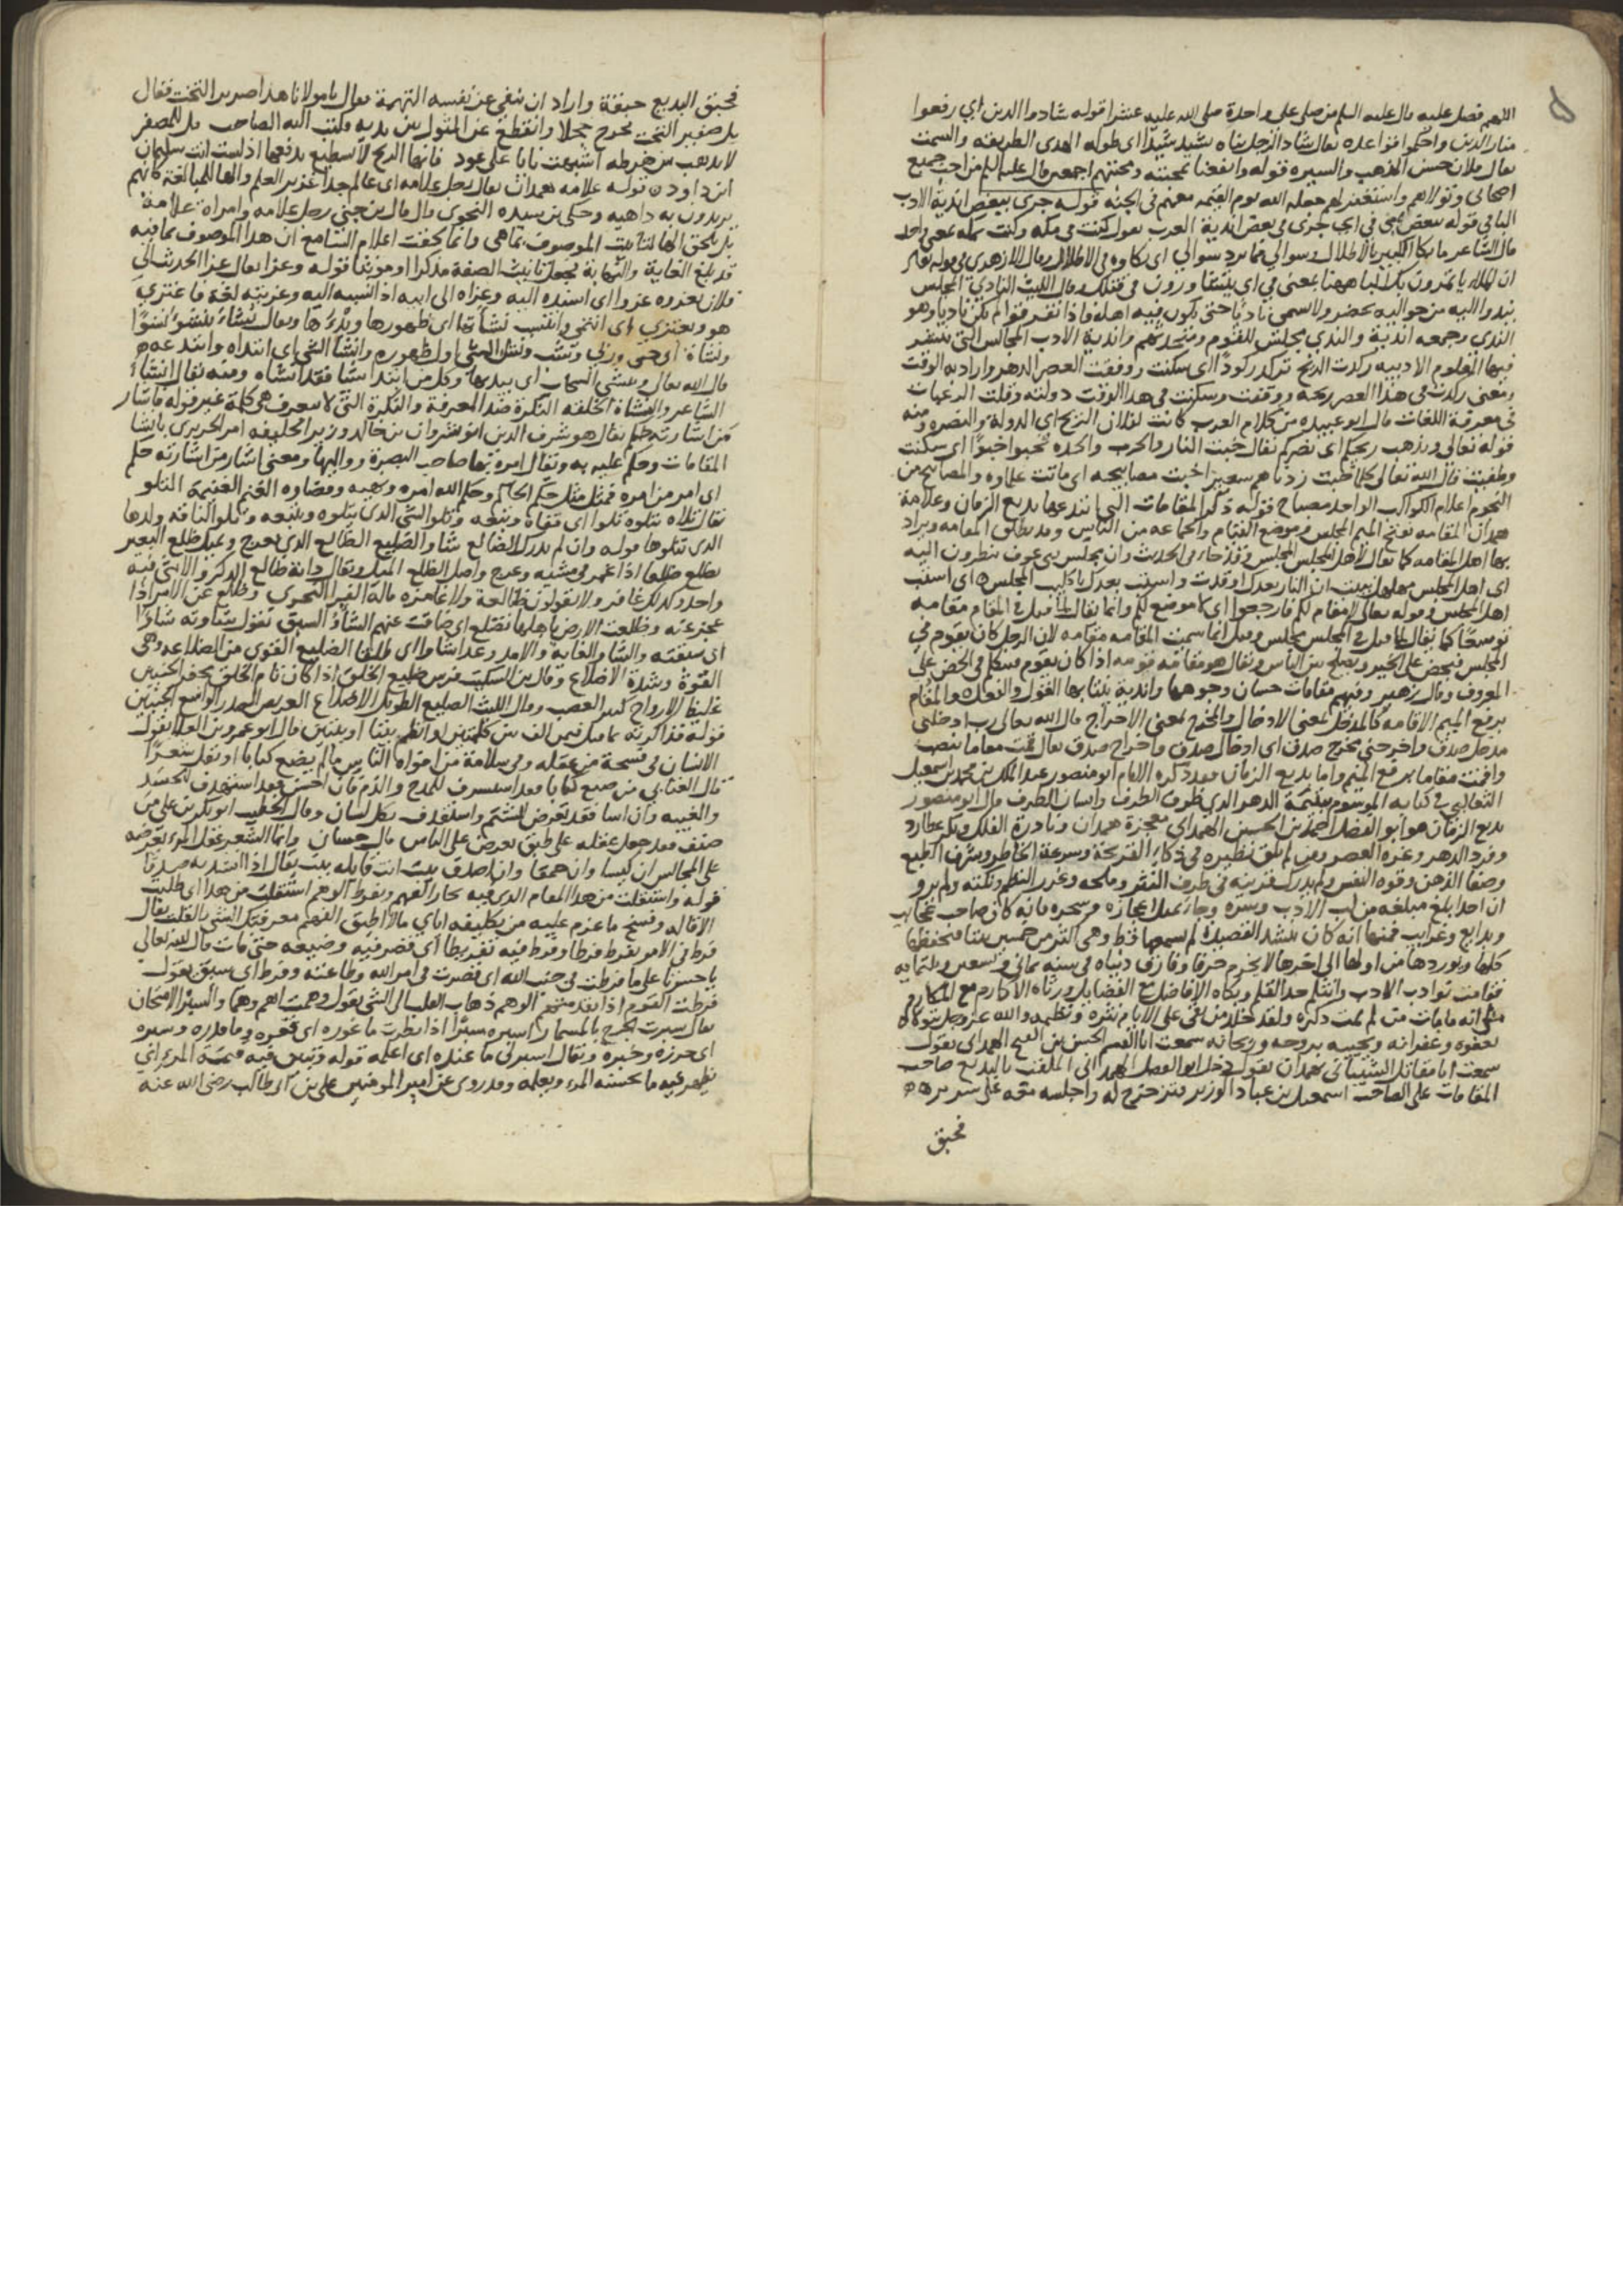 اللهم فصل عليه قال عليه السلم من صلى على واحدة صلى الله عليه عشرا قوله شادوا الدين اي رفعوا
منار الدين واحكموا قواعده يقال شاد الرجل بناه يشيده شيدا اي طوله الهدى الطريقة والسمت
يقال فلان حسن المذهب والسيرة قوله وانفعنا بمحبته ومحبتهم اجمعين قال عليه السلم من احب جميع
اصحابي وتولاهم واستغفر لهم جعله الله يوم القيمه معهم في الجنه قوله جرى ببعض اندية الادب
البا في قوله ببعض بمعنى في اي جرى في بعض اندية العرب يقول كنت في مكه وكنت بمكه بمعنى واحد
قال الشاعر ما بكا الكبير بالاطلال وسوالي فما يرد سوالي اي بكاوه في الاطلال وقال الازهري في قوله تعالى
ان الملا ياتمرون بك البا ههنا بمعنى في اي يتشاورون في قتلك وقال الليث النادي المجلس
يندوا اليه من حواليه بحضر ولا يسمى ناديا حتى يكون فيه اهله فاذا تفرقوا لم يكن ناديا وهو
الندي وجمعه اندية والندي مجلس للقوم ومتحدثهم واندية الادب المجالس التي ينتشر
فيها العلوم الادبيه ركدت الريح تركد ركودا اي سكنت ووقفت العصر الدهر واراد به الوقت
ومعنى ركدت في هذا العصر ريحه ووقفت وسكنت في هذا الوقت دولته وقلت الرغبات
في معرفة اللغات قال ابو عبيده من كلام العرب كانت لفلان الريح اي الدولة والنصره ومنه
قوله تعالى وتذهب ريحكم اي نصركم يقال خبت النار والحرب والحده تخبوا خبوا اي سكنت
وطفيت قال الله تعالى كلما خبت زدناهم سعيرا خبت مصابيحه اي ماتت علماوه والمصابيح من
النجوم اعلام الكواكب الواحد مصباح قوله ذكر المقامات التي ابتدعها بديع الزمان وعلامة
همدان المقامه بفتح الميم المجلس وموضع القيام والجماعه من الناس وقد يطلق المقامه ويراد
بها اهل المقامه كما يقال لاهل المجلس المجلس
اي اهل المجلس مهلهل نبيت ان النار بعدك اوقدت واستب بعدك يا كليب المجلس اي استب
اهل المجلس وقوله تعالى لا مقام لكم فارجعوا اي لا موضع لكم وانما يقال لما قيل في المقام مقامه
توسعا كما يقال لما قيل في المجلس مجلس وقيل انما سميت المقامه مقامه لان الرجل كان يقوم في
المجلس فيحض على الخير ويصلح بين الناس ويقال هو مقامة قومه اذا كان يقوم فيتكلم في الحض على
المعروف وقال زهير وفيهم مقامات حسان وجوهها واندية ينتابها القول والفعل والمقام
برفع الميم الاقامه كالمدخل بمعنى الادخال والمخرج بمعنى الاخراج قال الله تعالى رب ادخلني
مدخل صدق واخرجني مخرج صدق اي ادخال صدق واخراج صدق يقال قمت مقاما بنصب
واقمت مقاما برفع الميم واما بديع الزمان فقد ذكره الامام ابو منصور عبد الملك بن محمد بن اسمعيل
الثعالبي في كتابه الموسوم بيتيمة الدهر الذي ظرف الطرف وانسان الطرف قال ابو منصور
بديع الزمان هو ابو الفضل احمد بن الحسين الهمداني معجزة همدان ونادرة الفلك وبكر عطارد
وفرد الدهر وغرة العصر ومن لم يلق نظيره في ذكاء القريحة وسرعة الخاطر وشرف الطبع
وصفا الذهن وقوه النفس ولم يدرك قرينه في ظرف النثر وملحه وغرر النظم ونكته ولم يرو
ان احدا بلغ مبلغه من لب الادب وسره وجا بمثل اعجازه وسحره فانه كان صاحب عجايب
وبدايع وغرايب فمنها انه كان ينشد القصيدة لم يسمعها قط وهي اكثر من خمسين بيتا فيحفظها
كلها ويوردها من اولها الى اخرها لا يخرم حرفا وفارق دنياه في سنه ثماني وتسعين وثلثمايه
فقامت نوادب الادب وانثلم حد القلم وبكاه الافاضل مع الفضايل ورثاه الاكارم مع المكارم
على انه ما مات من لم يمت ذكره ولقد خلد من بقي على الايام نثره ونظمه والله عز وجل يتولاه
بعفوه وغفرانه ويحييه بروحه وريحانه سمعت ابا القسم الحسن بن الفتح الهمداني يقول
سمعت ابا مقاتل الشيباني بهمدان يقول دخل ابو الفضل الهمداني الملقب بالبديع صاحب
المقامات على الصاحب اسمعيل بن عباد الوزير فتزحزح له واجلسه معه على سريره
فحبق
فحبق البديع حبقة واراد ان ينفي عن نفسه التهمة فقال يا مولانا هذا صرير التخت فقال
بل صفير التحت فخرج خجلا وانقطع عن المثول بين يديه فكتب اليه الصاحب قل للصفر
لا يذهب من ضرطه اشبهت نايا على عود فانها الريح لا تسطيع تدفعها اذ لست انت سليمان
ابن داود قوله علامه همدان يقال رجل علامه اي عالم جدا غزير العلم والها للمبالغة كانهم
يريدون به داهيه وحكى بن سيده النحوي قال قال بن جني رجل علامه وامراة علامة
لم تلحق الها لتانيث الموصوف بما هي وانما لحقت اعلام السامع ان هذا الموصوف بما فيه
قد بلغ الغاية والنهاية فجعل تانيث الصفة مذكرا او مونثا قوله وعزا يقال عزا الحديث الى
فلان يعزوه عزوا اي اسنده اليه وعزاه الى ابيه اذا نسبه اليه وعزيته لغة فاعتزي
هو ويعتزي اي انتمى وانتسب نشاتها اي ظهورها وبدوها ويقال نشاء ينشؤ نشوا
ونشاة اي حيي وربي وشب ونشا الشي اول ظهوره وانشا الشي اي ابتداه وابتدعه
قال الله تعالى وينشي السحاب اي يبديها وكل من ابتدا شيا فقد انشاه ومنه يقال انشاء
الشاعر والنشاة الخلقه النكرة ضد المعرفة والنكرة التي لا تعرف هي كلمة غير قوله فاشار
من اشارته حكم يقال هو شرف الدين انوشروان بن خالد وزير الخليفه امر الحريري بانشا
المقامات وحكم عليه به ويقال امره بها صاحب البصرة وواليها ومعنى اشار من اشارته حكم
اي امر من امره ممتثل مثل حكم الحاكم وحكم الله امره ونهيه وقضاوه الغنم الغنيمة التلو
يقال تلاه يتلوه تلوا اي قفاه وتبعه وتلو الشي الذي يتلوه ويتبعه وتلو الناقه ولدها
الذي يتلوها قوله وان لم يدرك الظالع شاو الضليع الظالع الذي يعرج وغمز ظلع البعير
يظلع ظلعا اذا غمز في مشيه وعرج واصل الظلع الميل ويقال دابة ظالع الذكر والانثى فيه
واحد وكذلك غامز ولا يقولون ظالعة ولا غامزه قاله
عجز عنه وظلعت الارض باهلها تظلع اي ضاقت عنهم الشاو السبق تقول شاوته شاوا
اي سبقته والشاو الغاية والامد وعدا شاوا اي طلقا الضليع القوي من الضلاعه وهي
القوة وشدة الاضلاع وقال بن السكيت فرس ضليع الخلق اذا كان تام الخلق مجفر الجنبين
غليظ الالواح كثير العصب وقال الليث الضليع الطويل الاضلاع العريض الصدر الواسع الجنبين
قوله فذاكرته بما قيل فيمن الف بين كلمتين او نظم بيتا او بيتين قال ابو عمرو بن العلا يقول
الانسان في فسحة من عقله وفي سلامة من افواه الناس ما لم يضع كتابا او يقل شعرا
قال العتابي من صنع كتابا فقد استشرف للمدح والذم فان احسن فقد استهدف للحسد
والغيبه وان اسا فقد تعرض للشتم واستقذف بكل لسان وقال الخطيب ابو بكر بن علي من
صنف فقد جعل عقله على طبق يعرضه على الناس قال حسان وانما الشعر عقل المرء يعرضه
على المجالس ان كيسا وان حمقا وان اصدق بيت انت قايله بيت يقال اذا انشدته صدقا
قوله واستقلت من هذا المقام الذي فيه يحار الفهم ويفرط الوهم استقلت من هذا اي طلبت
الاقاله وفسخ ما عزم عليه من تكليفه اياي مالا اطيق الفهم معرفتك الشي بالقلب يقال
فرط في الامر يفرط فرطا وفرط فيه تفريطا اي قصر فيه وضيعه حتى فات قال الله تعالى
يا حسرتا على ما فرطت في جنب الله اي قصرت في امر الله وطاعته وفرط اي سبق يقول
فرطت القوم اذا تقدمتهم الوهم ذهاب القلب الى الشي يقول وهمت اهم وهما والسبر الامتحان
يقال سبرت الجرح بالمسبار اسبره سبرا اذا نظرت ما غوره اي قعره وما قدره وسبره
اي حرزه وخبره ويقال اسبرني ما عنده اي اعلمه قوله وتبين فيه قيمة المرء اي
يظهر فيه ما يحسنه المرء ويعلمه وقد روي عن امير المومنين علي بن ابي طالب رضي الله عنه